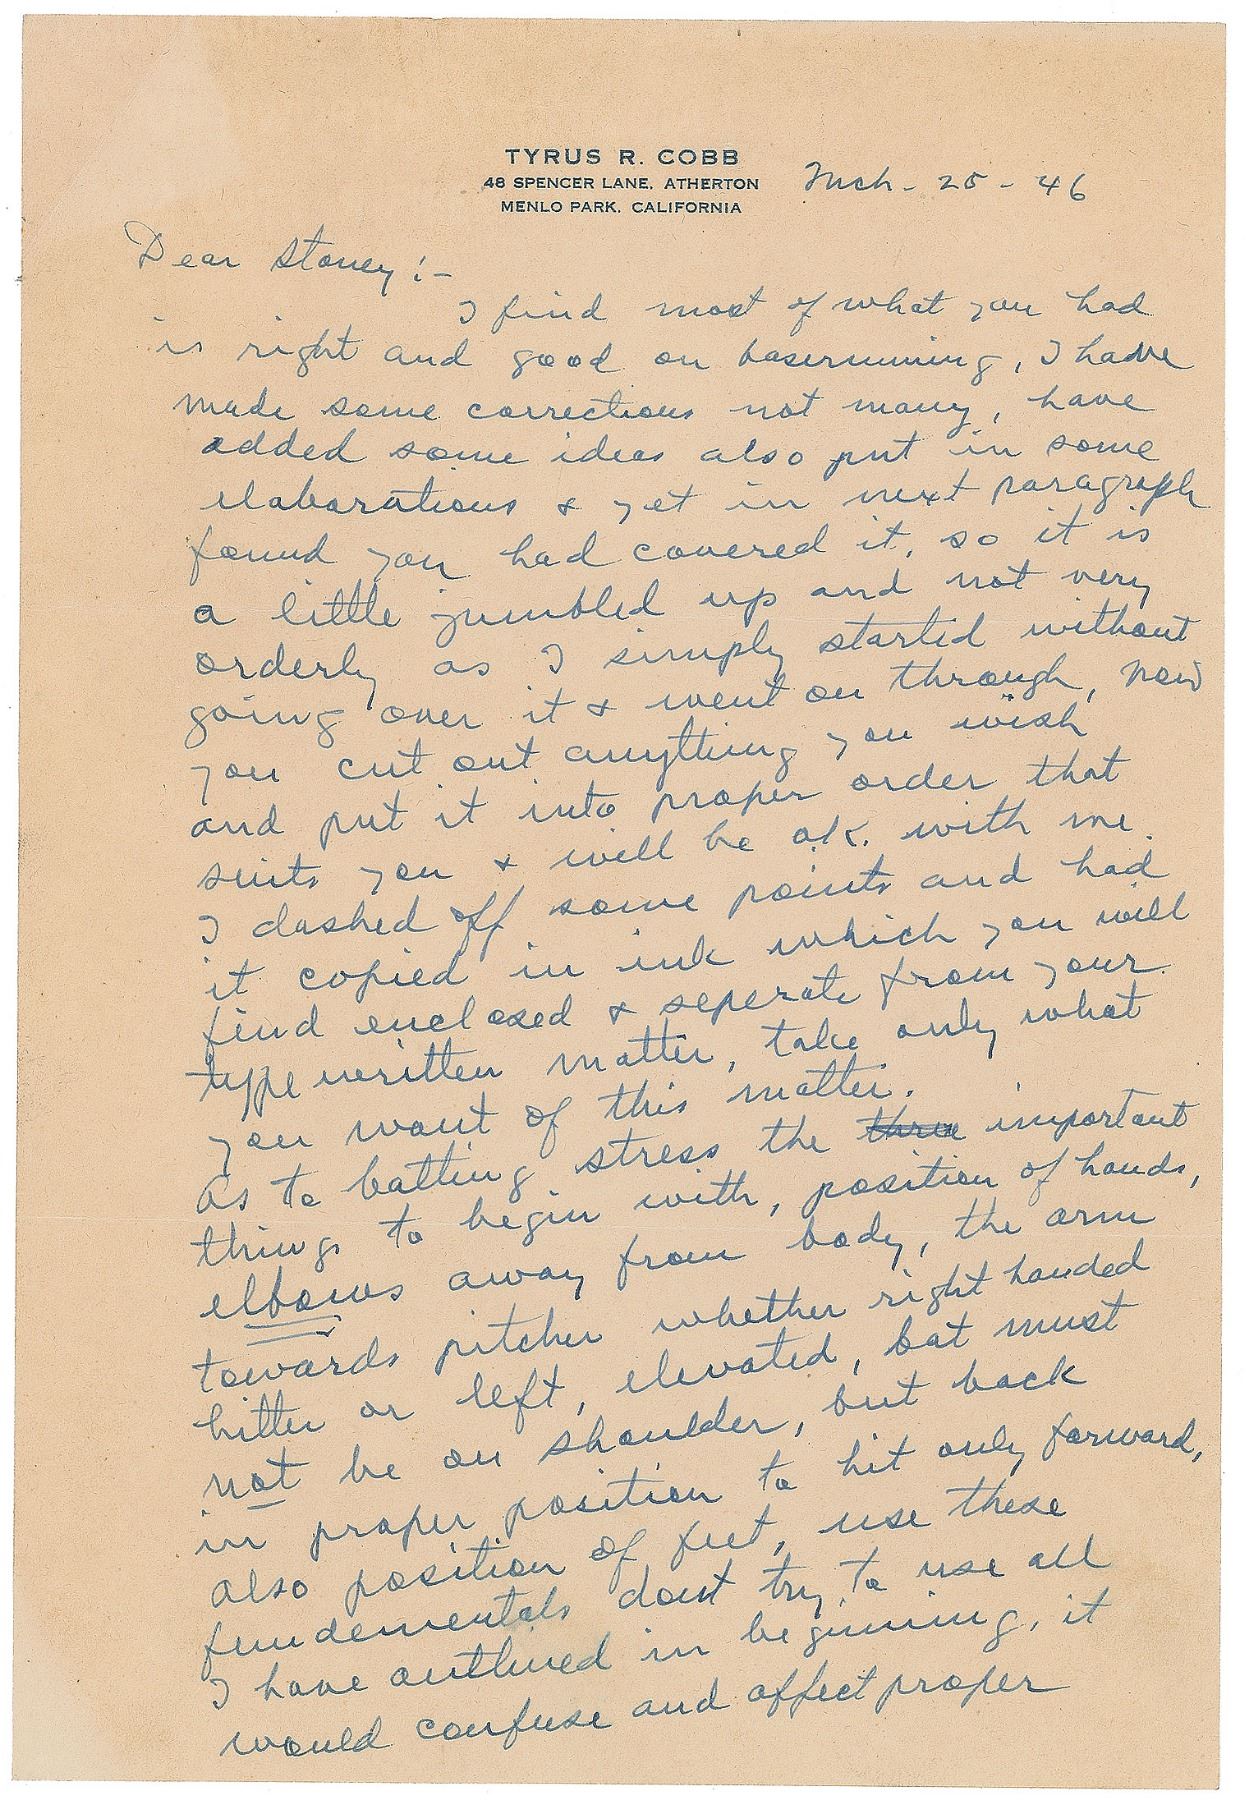 TYRUS R. COBB
48 SPENCER LANE, ATHERTON
MENLO PARK, CALIFORNIA
Mch - 25 - 46
Dear Stoney :-
I find most of what you had
is right and good on baserunning, I have
made some corrections not many, have
added some ideas also put in some
elaborations & yet in next paragraph
found you had covered it, so it is
a little jumbled up and not very
orderly as I simply started without
going over it & went on through, now
you cut out anything you wish
and put it into proper order that
suits you & will be o.k. with me.
I dashed off some points and had
it copied in ink which you will
find enclosed & seperate from your
typewritten matter, take only what
you want of this matter.
As to batting stress the three important
things to begin with, position of hands,
elbows away from body, the arm
towards pitcher whether right handed
hitter or left, elevated, bat must
not be on shoulder, but back
in proper position to hit only forward,
also position of feet, use these
fundementals dont try to use all
I have outlined in beginning, it
would confuse and affect proper